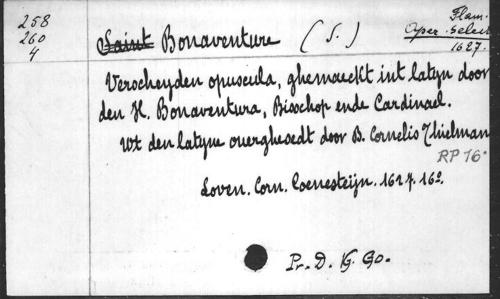 258
260
4
Saint Bonaventure (S.)
Flam.
Oper. select
1627.
Verscheyden opuscula, ghemaeckt int latyn door
den H. Bonaventura, Bisschop ende Cardinael.
Wt den latyne overghesedt door B. Cornelis Thielman
RP 76
Loven. Corn. Coenesteijn. 1627. 16º.
Pr. D. G. Go.